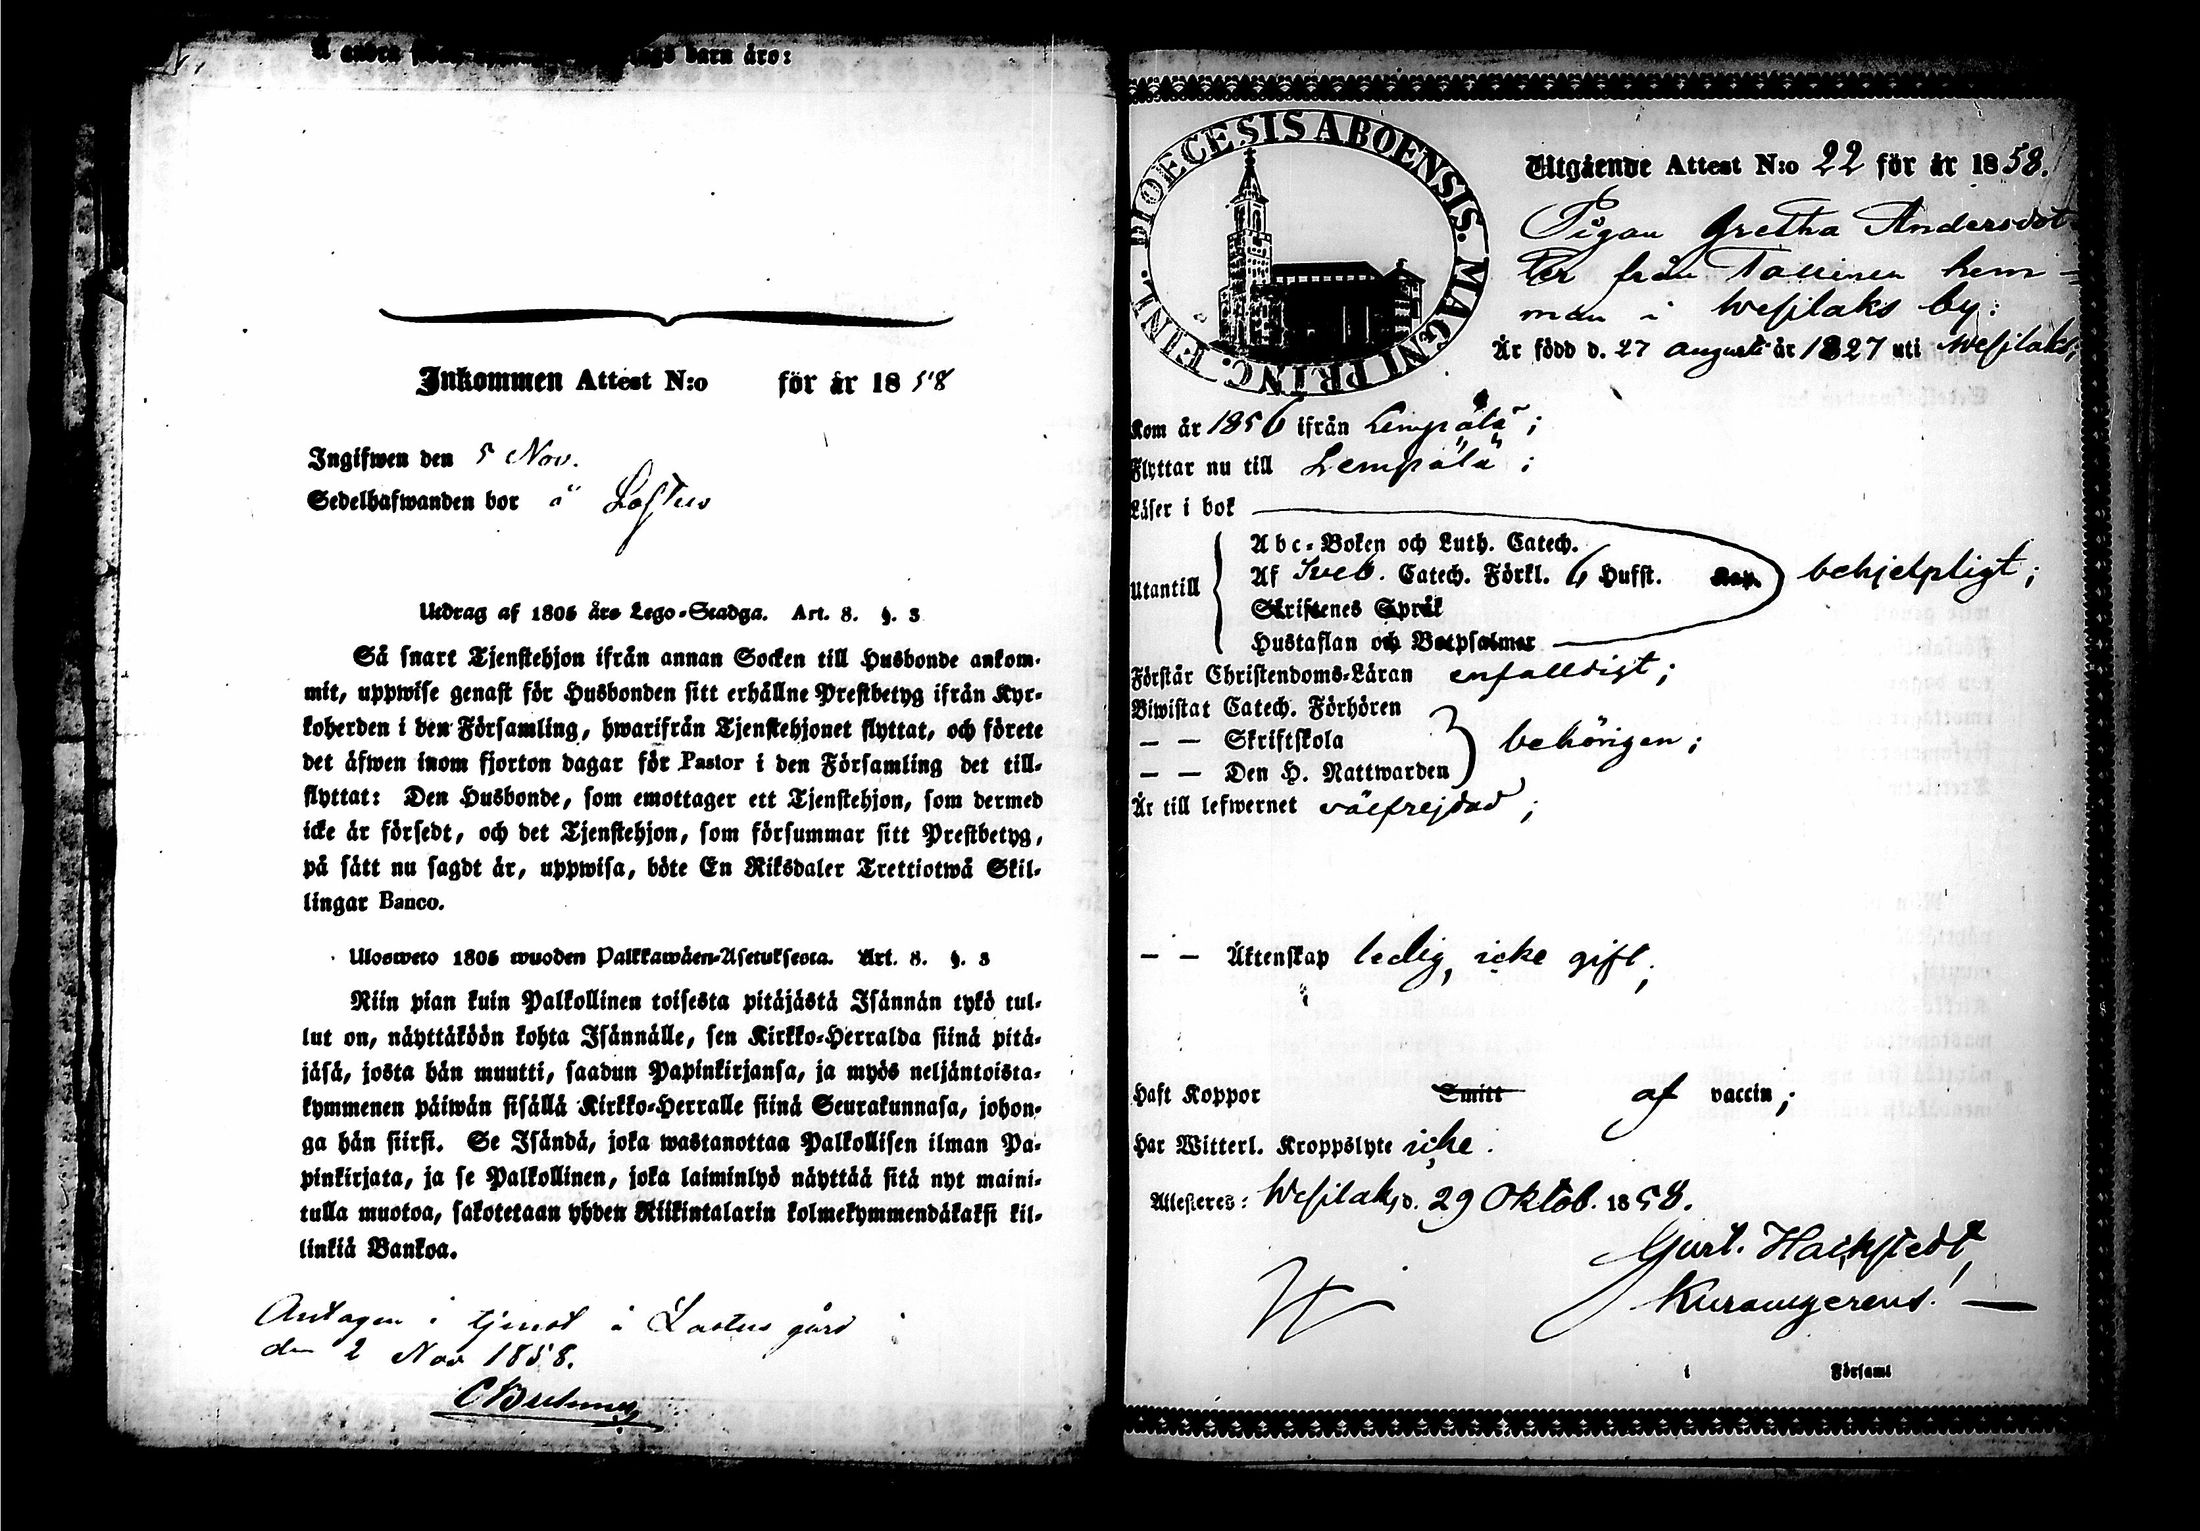 barn äro:
Inkommen Attest N:o för år 1858
Ingifwen den 5 Nov.
Sedelhafwanden bor å Lastus
Utdrag af 1805 års Lego-Stadga. Art. 8. §. 3
Så snart Tjenstehjon ifrån annan Socken till Husbonde ankom-
mit, uppwise genast för Husbonden sitt erhållne Prestbetyg ifrån Kyr-
koherden i den Församling, hwarifrån Tjenstehjonet flyttat, och förete
det äfwen inom fjorton dagar för Pastor i den Församling det till-
flyttat: Den Husbonde, som emottager ett Tjenstehjon, som dermed
icke är försedt, och det Tjenstehjon, som försummar sitt Prestbetyg,
på sätt nu sagdt är, uppwisa, böte En Riksdaler Trettiotwå Skil-
lingar Banco.
Ulosweto 1805 wuoden Palkkawäen-Asetuksesta. Art. 8. §. 3
Niin pian kuin Palkollinen toisesta pitäjästä Isännän tykö tul-
lut on, näyttäköön kohta Isännälle, sen Kirkko-Herralda siinä pitä-
jäsä, josta hän muutti, saadun Papinkirjansa, ja myös neljäntoista-
kymmenen päiwän sisällä Kirkko-Herralle siinä Seurakunnasa, johon-
ga hän siirsi. Se Isändä, joka wastanottaa Palkollisen ilman Pa-
pinkirjata, ja se Palkollinen, joka laiminlyö näyttää sitä nyt maini-
tulla muotoa, sakotetaan yhden Riikintalarin kolmekymmendäkaksi kil-
linkiä Bankoa.
Antagen i tjenst å Lastus gård
den 2 Nov 1858.
DIOECESIS ABOENSIS. MAGNI PRINC. FINL.
Utgående Attest N:o 22 för år 1858.
Pigan Gretha Andersdot-
ter från Tallinen hem-
man i Wesilaks by:
Är född d. 27 augusti år 1827 uti Wesilaks;
Kom år 1856 ifrån Lempälä;
Flyttar nu till Lempälä;
Läser i bok
Utantill
Abc-Boken och Luth. Catech.
Af Sveb. Catech. Förkl. 6 Hufst. Kap. behjelpligt;
Skriftenes Språk
Hustaflan och Botpsalmer
Förstår Christendoms-Läran enfalldigt;
Biwistat Catech. Förhören
— — Skriftskola behörigen;
— — Den H. Nattwarden
Är till lefwernet välfrejdad;
— — Äktenskap ledig, icke gift;
Haft Koppor Smitt af vaccin;
Har Witterl. Kroppslyte icke.
Attesteres: Wesilaks, d. 29 Oktob. 1858.
Gust. Hackstedt,
i Församl